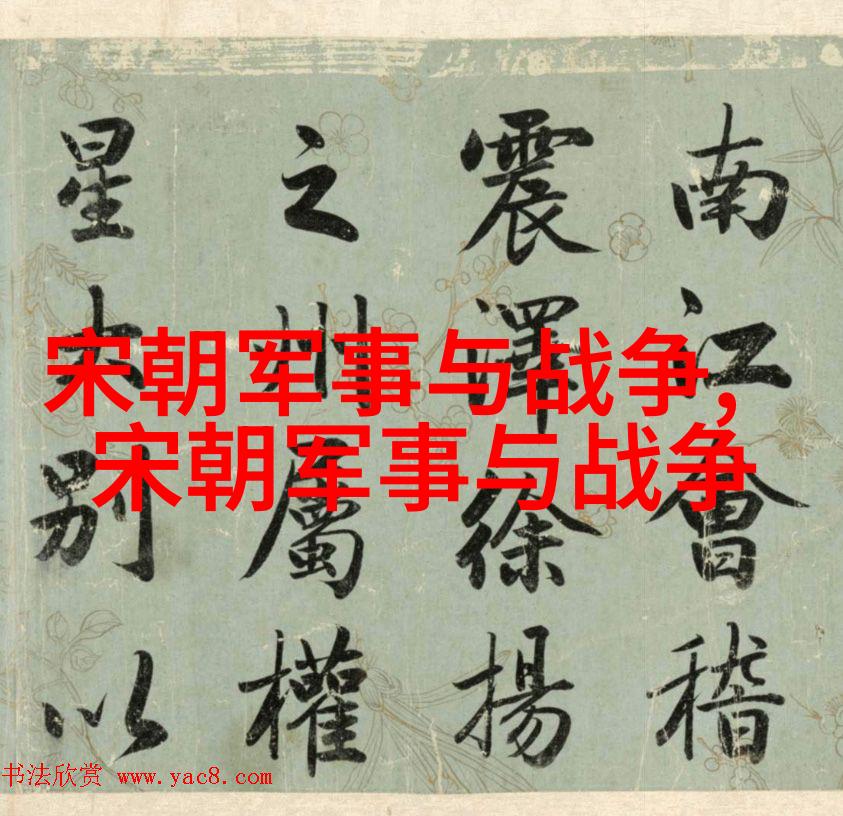 南江會稽
震澤徐揚
之州屬權
星別以
宋朝军事与战争,
宋朝军事与战争
书法欣赏 www.yac8.com